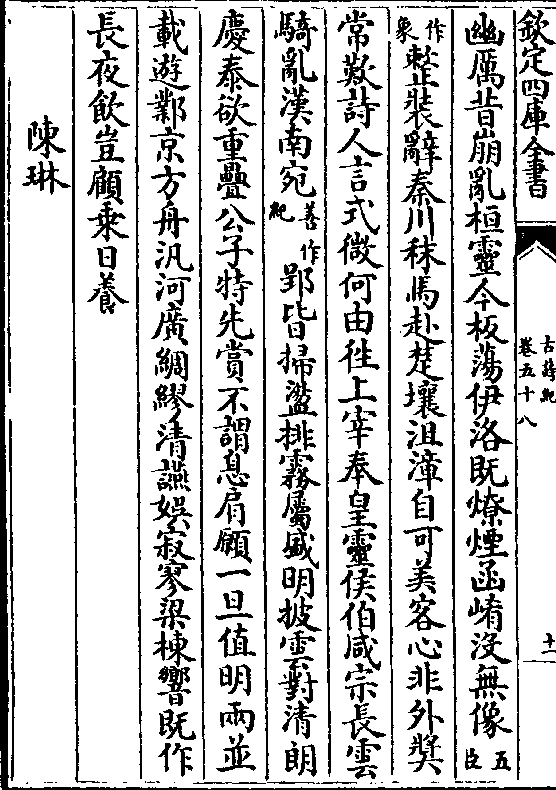 欽定四庫全書
古詩紀
卷五十八
十一
幽厲昔崩亂桓靈今板蕩伊洛既燎煙函崤没無像五臣
作象整裝辭秦川秣馬赴楚壤沮漳自可美客心非外奬
常歎詩人言式微何由往上宰奉皇靈侯伯咸宗長雲
騎亂漢南宛善作紀郢皆掃盪排霧屬盛明披雲對清朗
慶泰欲重疊公子特先賞不謂息肩願一旦值明兩並
載遊鄴京方舟汎河廣綢繆清讌娱寂寥梁棟響既作
長夜飲豈顧乘日養
陳琳